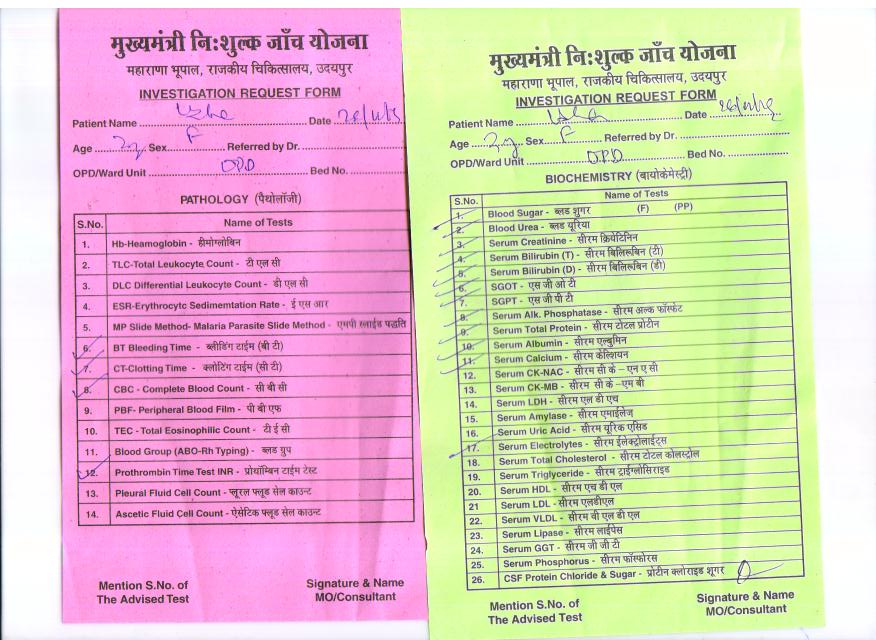 मुख्यमंत्री निःशुल्क जाँच योजना
महाराणा भूपाल, राजकीय चिकित्सालय, उदयपुर
INVESTIGATION REQUEST FORM
Patient Name Date
Age Sex F Referred by Dr.
OPD/Ward Unit OPD Bed No.
PATHOLOGY (पैथोलॉजी)
S.No. Name of Tests
1. Hb-Heamoglobin - हीमोग्लोबिन
2. TLC-Total Leukocyte Count - टी एल सी
3. DLC Differential Leukocyte Count - डी एल सी
4. ESR-Erythrocytc Sedimemtation Rate - ई एस आर
5. MP Slide Method- Malaria Parasite Slide Method - एमपी स्लाईड पद्धति
6. BT Bleeding Time - ब्लीडिंग टाईम (बी टी)
7. CT-Clotting Time - क्लोटिंग टाईम (सी टी)
8. CBC - Complete Blood Count - सी बी सी
9. PBF- Peripheral Blood Film - पी बी एफ
10. TEC - Total Eosinophilic Count - टी ई सी
11. Blood Group (ABO-Rh Typing) - ब्लड ग्रुप
12. Prothrombin Time Test INR - प्रोथॉम्बिन टाईम टेस्ट
13. Pleural Fluid Cell Count - प्लूरल फ्लूड सेल काउन्ट
14. Ascetic Fluid Cell Count - ऐसेटिक फ्लूड सेल काउन्ट
Mention S.No. of Signature & Name
The Advised Test MO/Consultant
मुख्यमंत्री निःशुल्क जाँच योजना
महाराणा भूपाल, राजकीय चिकित्सालय, उदयपुर
INVESTIGATION REQUEST FORM
Patient Name Date
Age Sex F Referred by Dr.
OPD/Ward Unit OPD Bed No.
BIOCHEMISTRY (बायोकेमेस्ट्री)
S.No. Name of Tests
1. Blood Sugar - ब्लड शुगर (F) (PP)
2. Blood Urea - ब्लड यूरिया
3. Serum Creatinine - सीरम क्रियेटिनिन
4. Serum Bilirubin (T) - सीरम बिलिरूबिन (टी)
5. Serum Bilirubin (D) - सीरम बिलिरूबिन (डी)
6. SGOT - एस जी ओ टी
7. SGPT - एस जी पी टी
8. Serum Alk. Phosphatase - सीरम अल्क फॉस्फेट
9. Serum Total Protein - सीरम टोटल प्रोटीन
10. Serum Albumin - सीरम एल्बुमिन
11. Serum Calcium - सीरम केल्शियन
12. Serum CK-NAC - सीरम सी के - एन ए सी
13. Serum CK-MB - सीरम सी के -एम बी
14. Serum LDH - सीरम एल डी एच
15. Serum Amylase - सीरम एमाईलेज
16. Serum Uric Acid - सीरम यूरिक एसिड
17. Serum Electrolytes - सीरम ईलेक्ट्रोलाईट्स
18. Serum Total Cholesterol - सीरम टोटल कोलस्ट्रोल
19. Serum Triglyceride - सीरम ट्राईग्लोसिराइड
20. Serum HDL - सीरम एच डी एल
21 Serum LDL - सीरम एलडीएल
22. Serum VLDL - सीरम वी एल डी एल
23. Serum Lipase - सीरम लाईपेस
24. Serum GGT - सीरम जी जी टी
25. Serum Phosphorus - सीरम फॉसफोरस
26. CSF Protein Chloride & Sugar - प्रोटीन क्लोराइड शूगर
Mention S.No. of Signature & Name
The Advised Test MO/Consultant